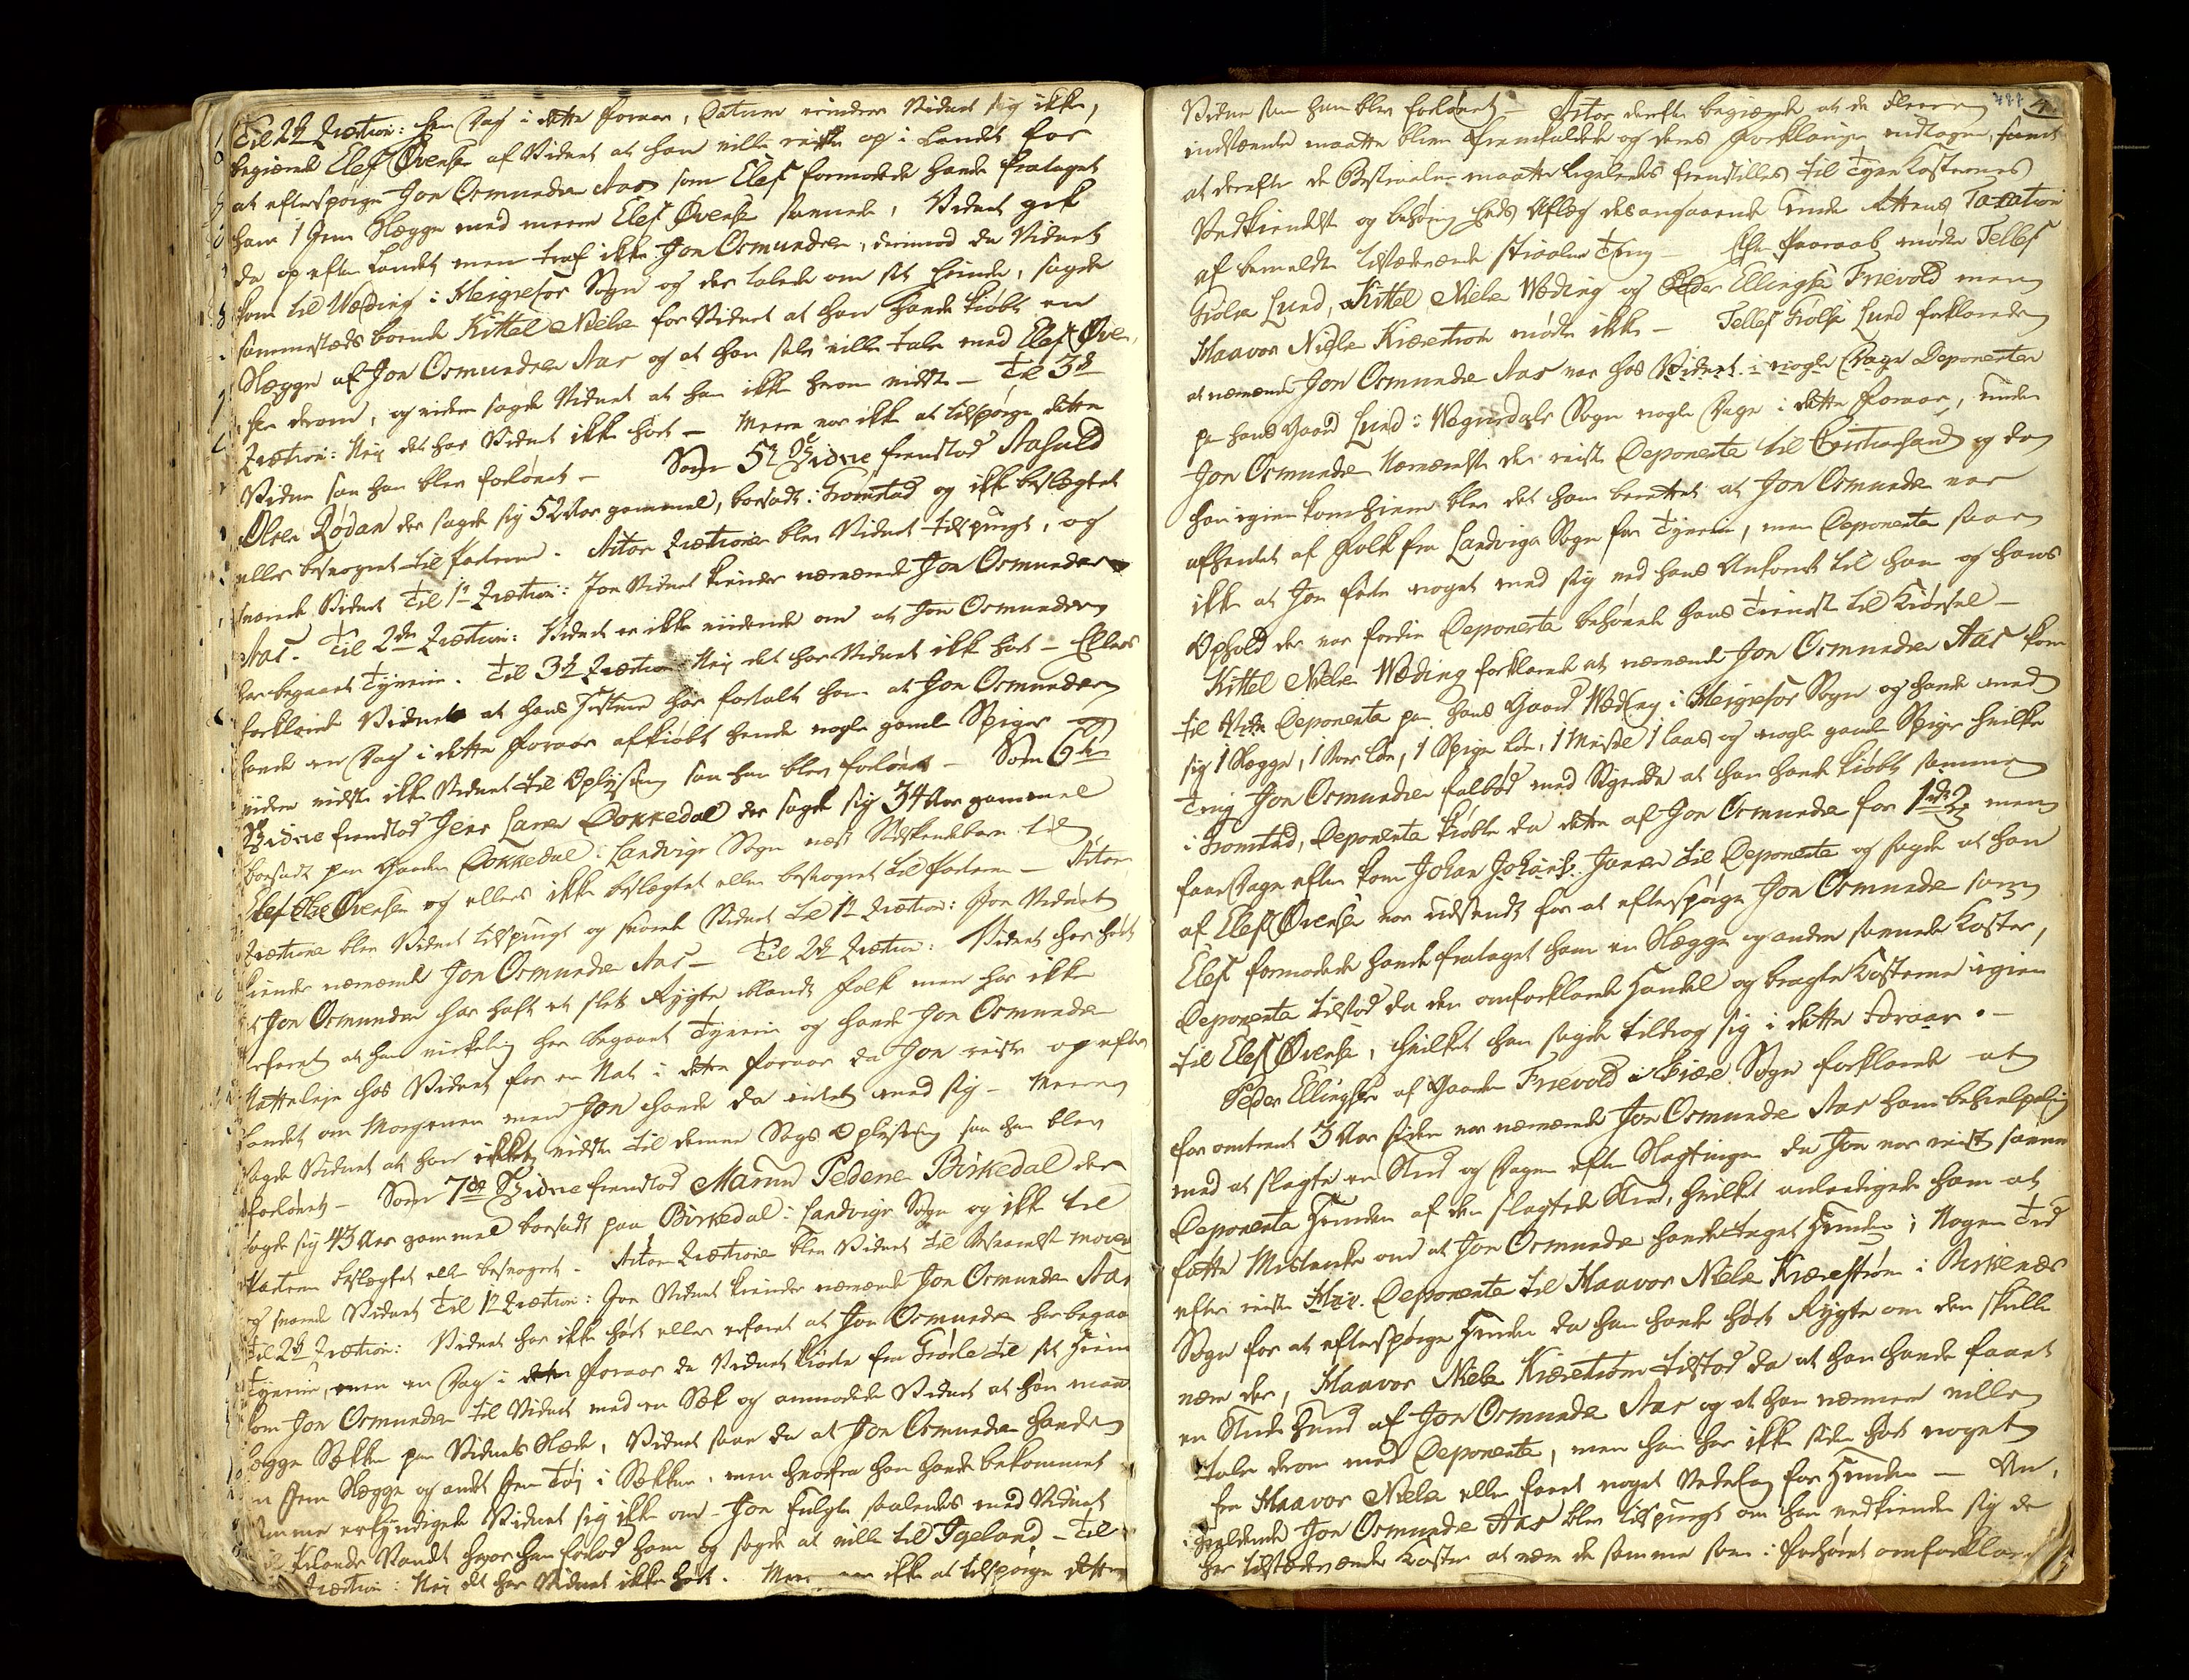 Til 2den Qvæstion: hen Dag i dette Foraar, Datum erindrer Vidnet sig ikke,
begiærede Elef Øvensen af Vidnet at han ville reise op i Landet for
at efterspørge Jon Osmundsen Aas som Elef formodede havde frataget
ham 1 Jern Slægge med meere Elef Øvensen savnede, Vidnet gik
da op efter Landet men traf ikke Jon Osmundsen, derimod da Vidnet
kom til Væding i Heirefos Sogn og der talede om sit Erinde, sagde
sammesteds boende Kittel Nielsen for Vidnet at han havde kiøbt en
Slægge af Jon Osmundsen Aas og at han selv ville tale med Elef Øven-
sen derom, og videre sagde Vidnet at han ikke herom vidste – Til 3de
Qvæstion: Nej det har Vidnet ikke hørt – Meere var ikke at tilspørge dette
Vidne saa han blev forlovet – Som 5te Vidne fremstod Aasuld
Olsen Rødan der sagde sig 52 Aar gammel, boesadt i Fromstad og ikke beslægtet
eller besvogret til Faderen. Actor Qvæstionen blev Vidnet tilspurgt, og
svarede Vidnet Til 1te Qvæstion: Jon Vidnet kiender nævnende Jon Osmundsen
Aas. Til 2den Qvæstion: Vidnet er ikke vidende om at Jon Osmundsen
har begaaet Tyverie. Til 3de Qvæstion Nej det har Vidnet ikke hørt – Ellers
forklarede Vidnet at hans Hustrue har fortalt ham at Jon Osmundsen
havde en Dag i dette Foraar afkiøbt hende nogle gamle Spiger og
videre vidste ikke Vidnet til Oplysning saa han blev forlovet – Som 6te
Vidne fremstod Jens Larsen Dokkedal der sagde sig 34 Aar gammel
boesadt paa Gaarden Dokkedal i Landvigs Sogn næst Sødskendebarn til
Elef Øvensen og ellers ikke beslægtet eller besvogret til Faderen – Actor
Qvæstionen blev Vidnet tilspurgt og svarede Vidnet til 1te Qvæstion: Jon Vidnet
kiender nævnende Jon Osmundsen Aas – Til 2den Qvæstion: Vidnet har hørt
at Jon Osmundsen har haft et slet Rygte iblandt Folk men har ikke
erfaret at han virkelig har begaaet Tyverie og havde Jon Osmundsen
Natteleje hos Vidnet for en Nat i dette Foraar da Jon reiste op efter
Landet om Morgenen men Jon havde da intet med sig – Meere
sagde Vidnet at han ikke vidste til denne Sags Oplysning saa han blev
forlovet – Som 7de Vidne fremstod Maren Peders Birkedal der
sagde sig 43 Aar gammel boesadt paa Birkedal i Landvigs Sogn og ikke til
Faderen beslægtet eller besvogret. Actor Qvæstionen blev Vidnet til Besvarelse
og svarede Vidnet Til 1te Qvæstion: Jon Vidnet kiender nævnende Jon Osmundsen Aas
Til 2den Qvæstion: Vidnet har ikke hørt eller erfaret at Jon Osmundsen har begaaet
Tyverie, men en Dag i dette Foraar da Vidnet kiørte fra Froele til sit Hiem
kom Jon Osmundsen til Vidnet med en Sæk og anmodede Vidnet at han maatte
lægge Sækken paa Vidnets Slæde, Vidnet saae da at Jon Osmundsen havde
en Jern Slægge og andet Jern Tøj i Sækken, men hvorfra han havde bekommet
samme erkyndigede Vidnet sig ikke om – Jon fulgte saaledes med Vidnet
til Kilands Vandet hvor han forlod ham og sagde at ville til Igeland – Til
Qvæstion: Nej det har Vidnet ikke hørt. Meere var ikke at tilspørge dette
Vidne saa han blev forlovet – Actor derefter begiærede at de fleere
indstævnte maatte blive fremkaldede og deres Forklaringer indtagne, samt
at derefter de Bestiaalne maatte ligeledes fremstilles til Tyve Kosternes
Vedkiendelse og behørig Eeds Aflæg desangaaende samt Rettens Taxation
af bemeldte tilstædeværende stiaalne Ting – Efter Paaraab mødte Tellef
Troelsen Lund, Kittel Nielsen Væding og Peder Ellingsen Frievold men
Haavor Nielsen Kiærestrøm mødte ikke – Tellef Troelsen Lund forklarede
at nævnende Jon Osmundsen Aas var hos Vidnet i nogle Dage Deponenten
paa hans Gaard Lund i Vegusdals Sogn nogle Dage i dette Foraar, under
Jon Osmundsens Nærværelse der reiste Deponenten til Christiansand og da
han igien kom hiem blev det ham berettet at Jon Osmundsen var
afhentet af Folk fra Landvigs Sogn for Tyverie, men Deponenten saae
ikke at Jon førte noget med sig ved hans Ankomst til ham og hans
Ophold der var fordi Deponenten behøvede hans Tieneste til Kiørsel –
Kittel Nielsen Væding forklarede at nævnende Jon Osmundsen Aas kom
til Deponenten paa hans Gaard Væding i Heirefos Sogn og havde med
sig 1 Slægge, 1 Spiger Løe, 1 Meisel 1 Laas og nogle gamle Spiger hvilke
Ting Jon Osmundsen falbød med Sigende at han havde kiøbt samme
i Fromstad, Deponenten kiøbte da dette af Jon Osmundsen for 1 rd 2 men
faae Dage efter kom Johan Johans. Jaaren til Deponenten og sagde at han
af Elef Øvensen var udsendt for at efterspørge Jon Osmundsen som
Elef formodede havde frataget ham en Slægge og andre savnede Koster,
Deponenten tilstod da den omforklarede Handel og bragte Kosterne igien
til Elef Øvensen, hvilket han sagde tildrog sig i dette Foraar. –
Peder Ellingsen af Gaarden Frievold i Øiæstrs Sogn forklarede at
for omtrent 3 Aar siden var nævnende Jon Osmundsen Aas ham behielpelig
med at slagte en Stud og Dagen efter Slagtningen da Jon var reist savnede
Deponenten Huuden af den slagtede Stud, hvilket anledigede ham at
fatte Mistanke om at Jon Osmundsen havde taget Huuden; Nogen Tid
efter reiste Deponenten til Haavor Nielsen Kiærestrøm i Birkenæs
Sogn for at efterspørge Huuden da han havde hørt Rygte om den skulle
være der, Haavor Nielsen Kiærestrøm tilstod da at han havde faaet
en Stude Huud af Jon Osmundsen Aas og at han nærmere ville
tale derom med Deponenten, men han har ikke siden hørt noget
fra Haavor Nielsen eller faaet noget Vederlag for Huuden – An-
gieldende Jon Osmundsen Aas blev tilspurgt om han vedkiender sig de
her tilstædeværende Koster at være de samme som i Forhøret omforklaret